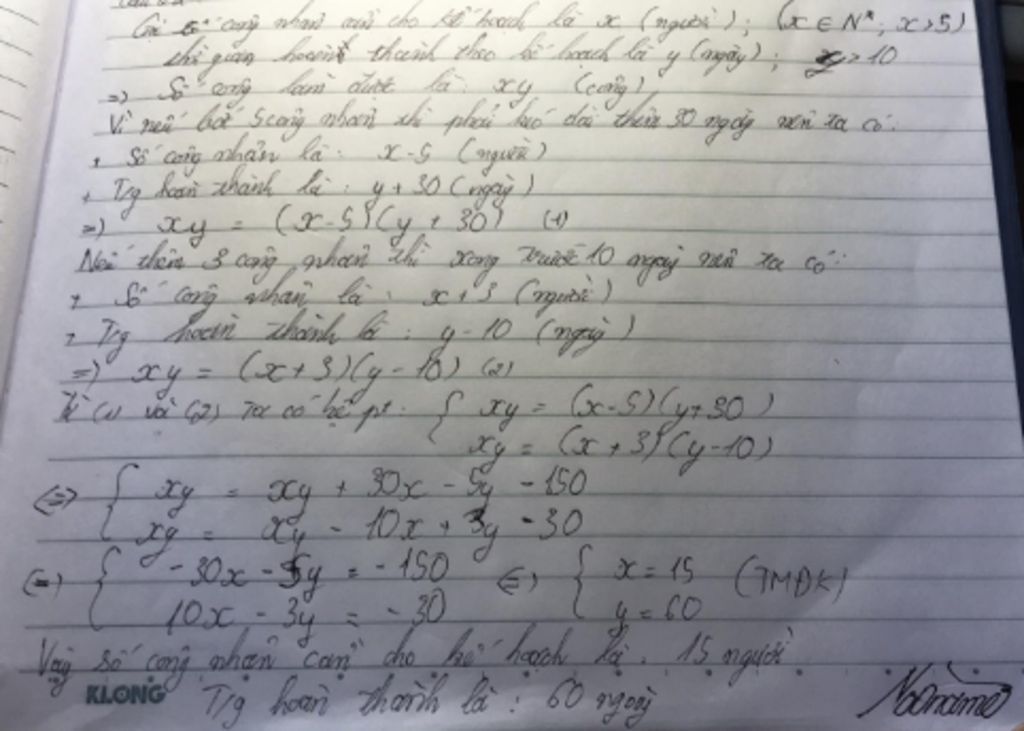 công nhân cần cho kế hoạch là x (người); (x ∈ N*; x > 5)
thời gian hoành thành theo kế hoạch là y (ngày); y > 10
=) Số công làm được là: xy (công)
Vì nếu bớt 5 công nhân thì phải kéo dài thêm 30 ngày nên ta có:
+ Số công nhân là: x - 5 (người)
+ T/g hoàn thành là: y + 30 (ngày)
=) xy = (x - 5)(y + 30) (1)
Nếu thêm 3 công nhân thì xong trước 10 ngày nên ta có:
+ Số công nhân là: x + 3 (người)
+ T/g hoàn thành là: y - 10 (ngày)
=) xy = (x + 3)(y - 10) (2)
Từ (1) và (2) ta có hệ pt: { xy = (x - 5)(y + 30)
xy = (x + 3)(y - 10)
(=) { xy = xy + 30x - 5y - 150
xy = xy - 10x + 3y - 30
(=) { -30x - 5y = -150 (=) { x = 15 (TMĐK)
10x - 3y = -30 y = 60
Vậy số công nhân cần cho kế hoạch là: 15 người
KLONG T/g hoàn thành là: 60 ngày